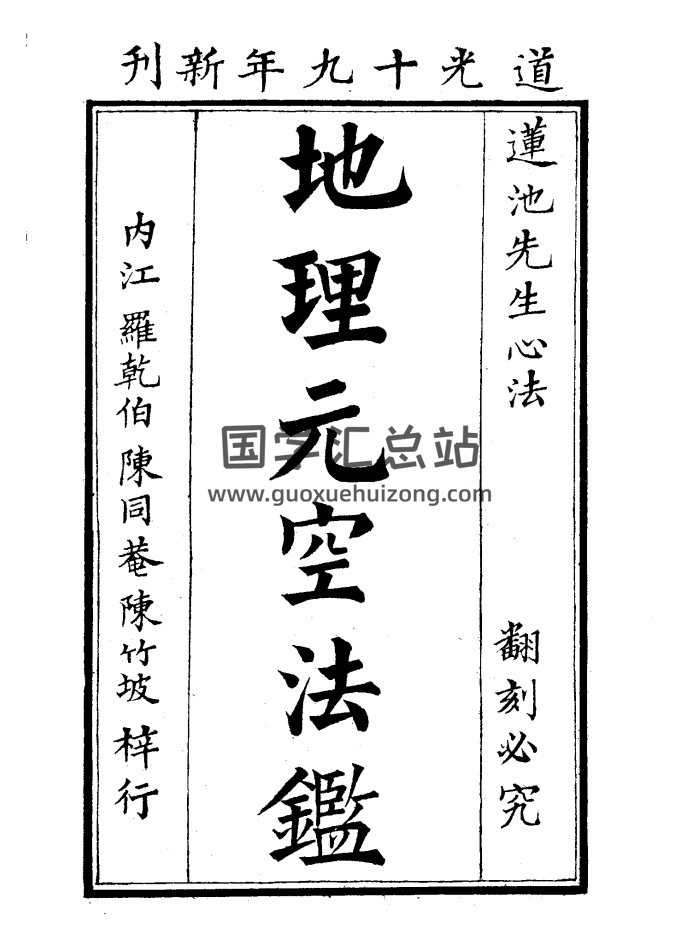 道光十九年新刊
蓮池先生心法
翻刻必究
地理元空法鑑
内江羅乾伯陳同菴陳竹坡梓行
国学汇总站
www.guoxuehuizong.com